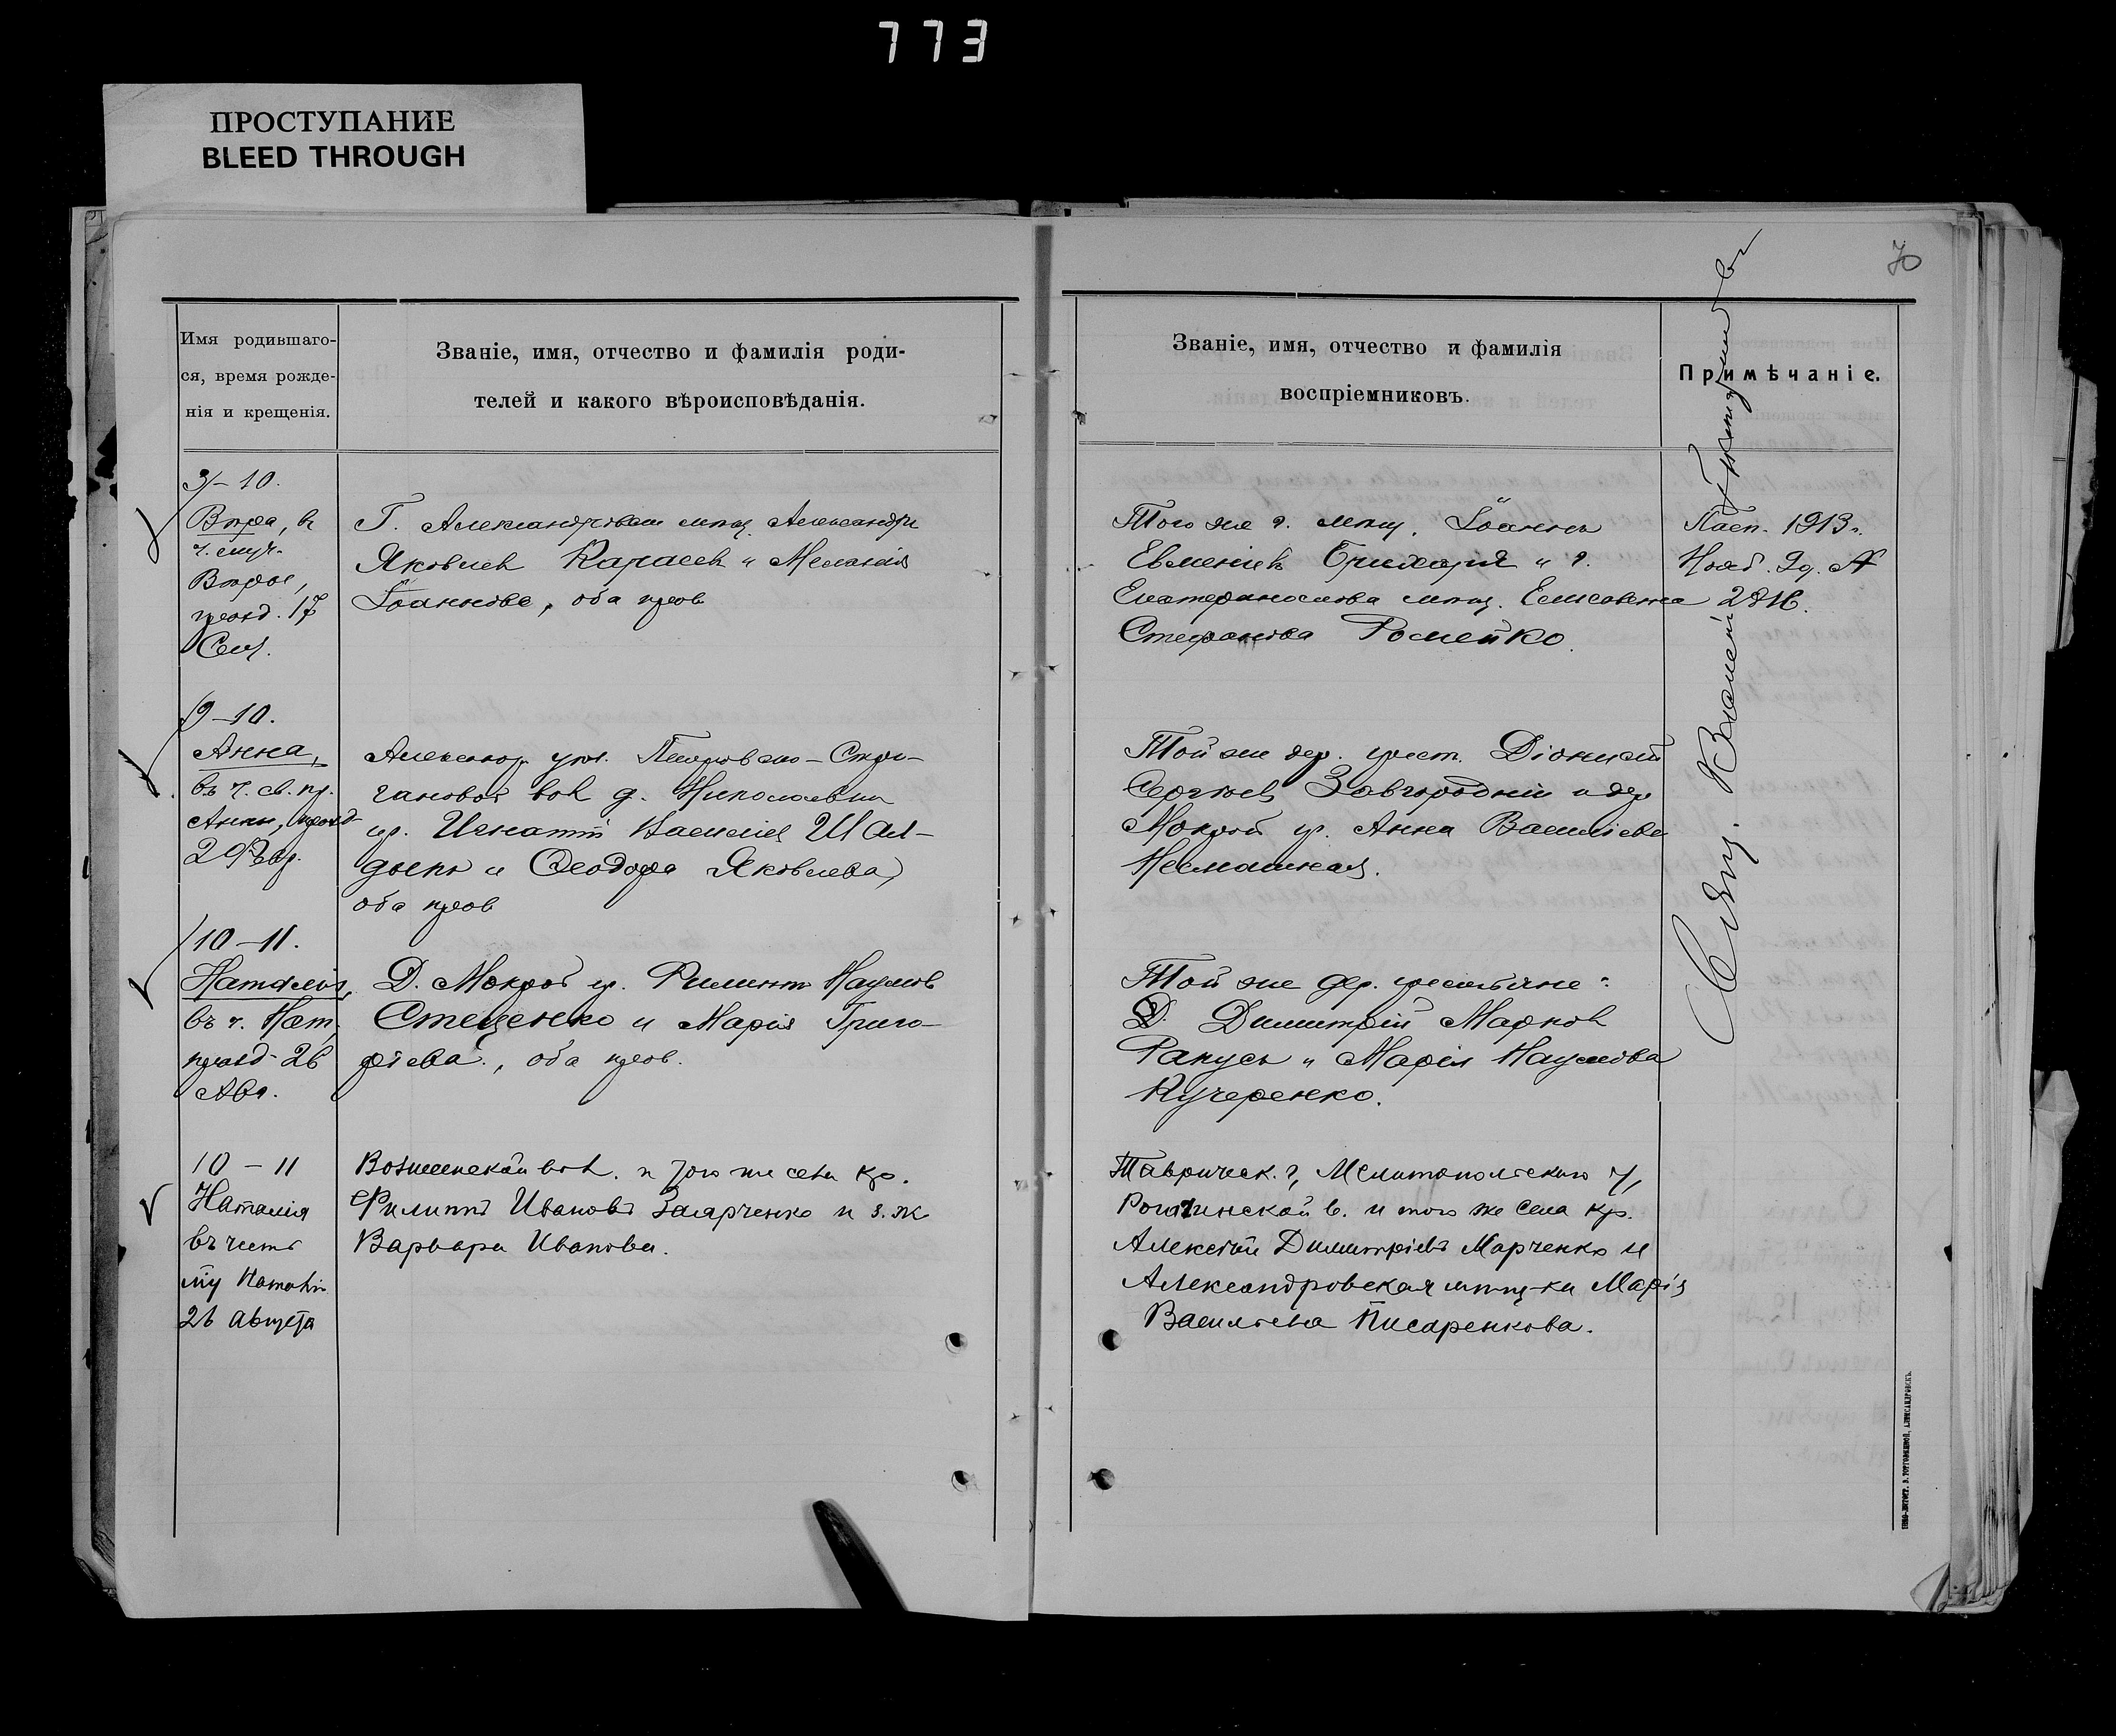 773
ПРОСТУПАНИЕ
BLEED THROUGH
70
Имя родившаго-
ся, время рожде-
нія и крещенія.
Званіе, имя, отчество и фамилія роди-
телей и какого вѣроисповѣданія.
Званіе, имя, отчество и фамилія
воспріемниковъ.
Примѣчаніе.
3-10.
Вѣра, въ
ч. муч.
Вѣры,
празд. 17
Сент.
Г. Александровска мѣщ. Александръ
Яковлевъ Карасевъ и Меланія
Іоаннова, оба прав
Того же г. мѣщ. Іоаннъ
Евменіевъ и г.
Екатеринослава мѣщ. Елисавета
Стефанова Ромейко.
Пасп. 1913 г.
Нояб. 9 д. №
9-10.
Анна,
въ ч. св. пр.
Анны, празд-
Александр. уѣз. Петровско-
вол д. Николаевки
кр. Игнатій Василіев Шал-
и Ѳеодора Яковлева,
оба прав
Той же дер. крест. Діонисій
Сергіевъ Завгородній и дер
Мокрой кр. Анна Василіева
10-11.
Наталія,
въ ч. Нат.
празд 26
Авг.
Д. Мокрой кр. Филиппъ Наумов
Стеценко и Марія Григо-
ріева, оба прав.
Той же дер. крестьяне:
Димитрій Марков
Рапусь и Марія Наумова
Кучеренко.
10-11
Наталія
въ честь
мц Наталіи
26 Августа
Вознесенской вол. и того же села кр.
Филиппъ Ивановъ и з. ж
Варвара Иванова.
Таврическ. г, Мелитопольскаго у,
в. и того же села кр.
Алексѣй Димитріевъ Марченко и
Александровская мѣщ-ка Марія
Васильева Писаренкова.
Свящ.